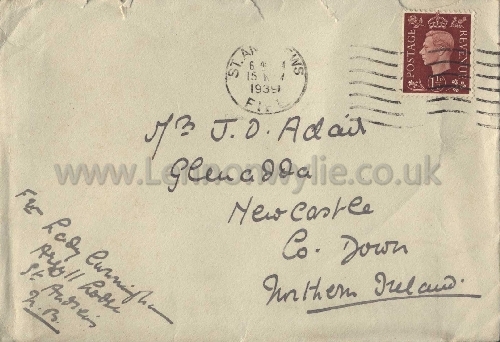 ST. ANDREWS
15
1939
FIFE
POSTAGE
REVENUE
J. D. Adair
Glenadda
Newcastle
Co. Down
Northern Ireland.
www.Lennonwylie.co.uk
Lady Cunningham
Argyll Lodge
St. Andrews
N.B.